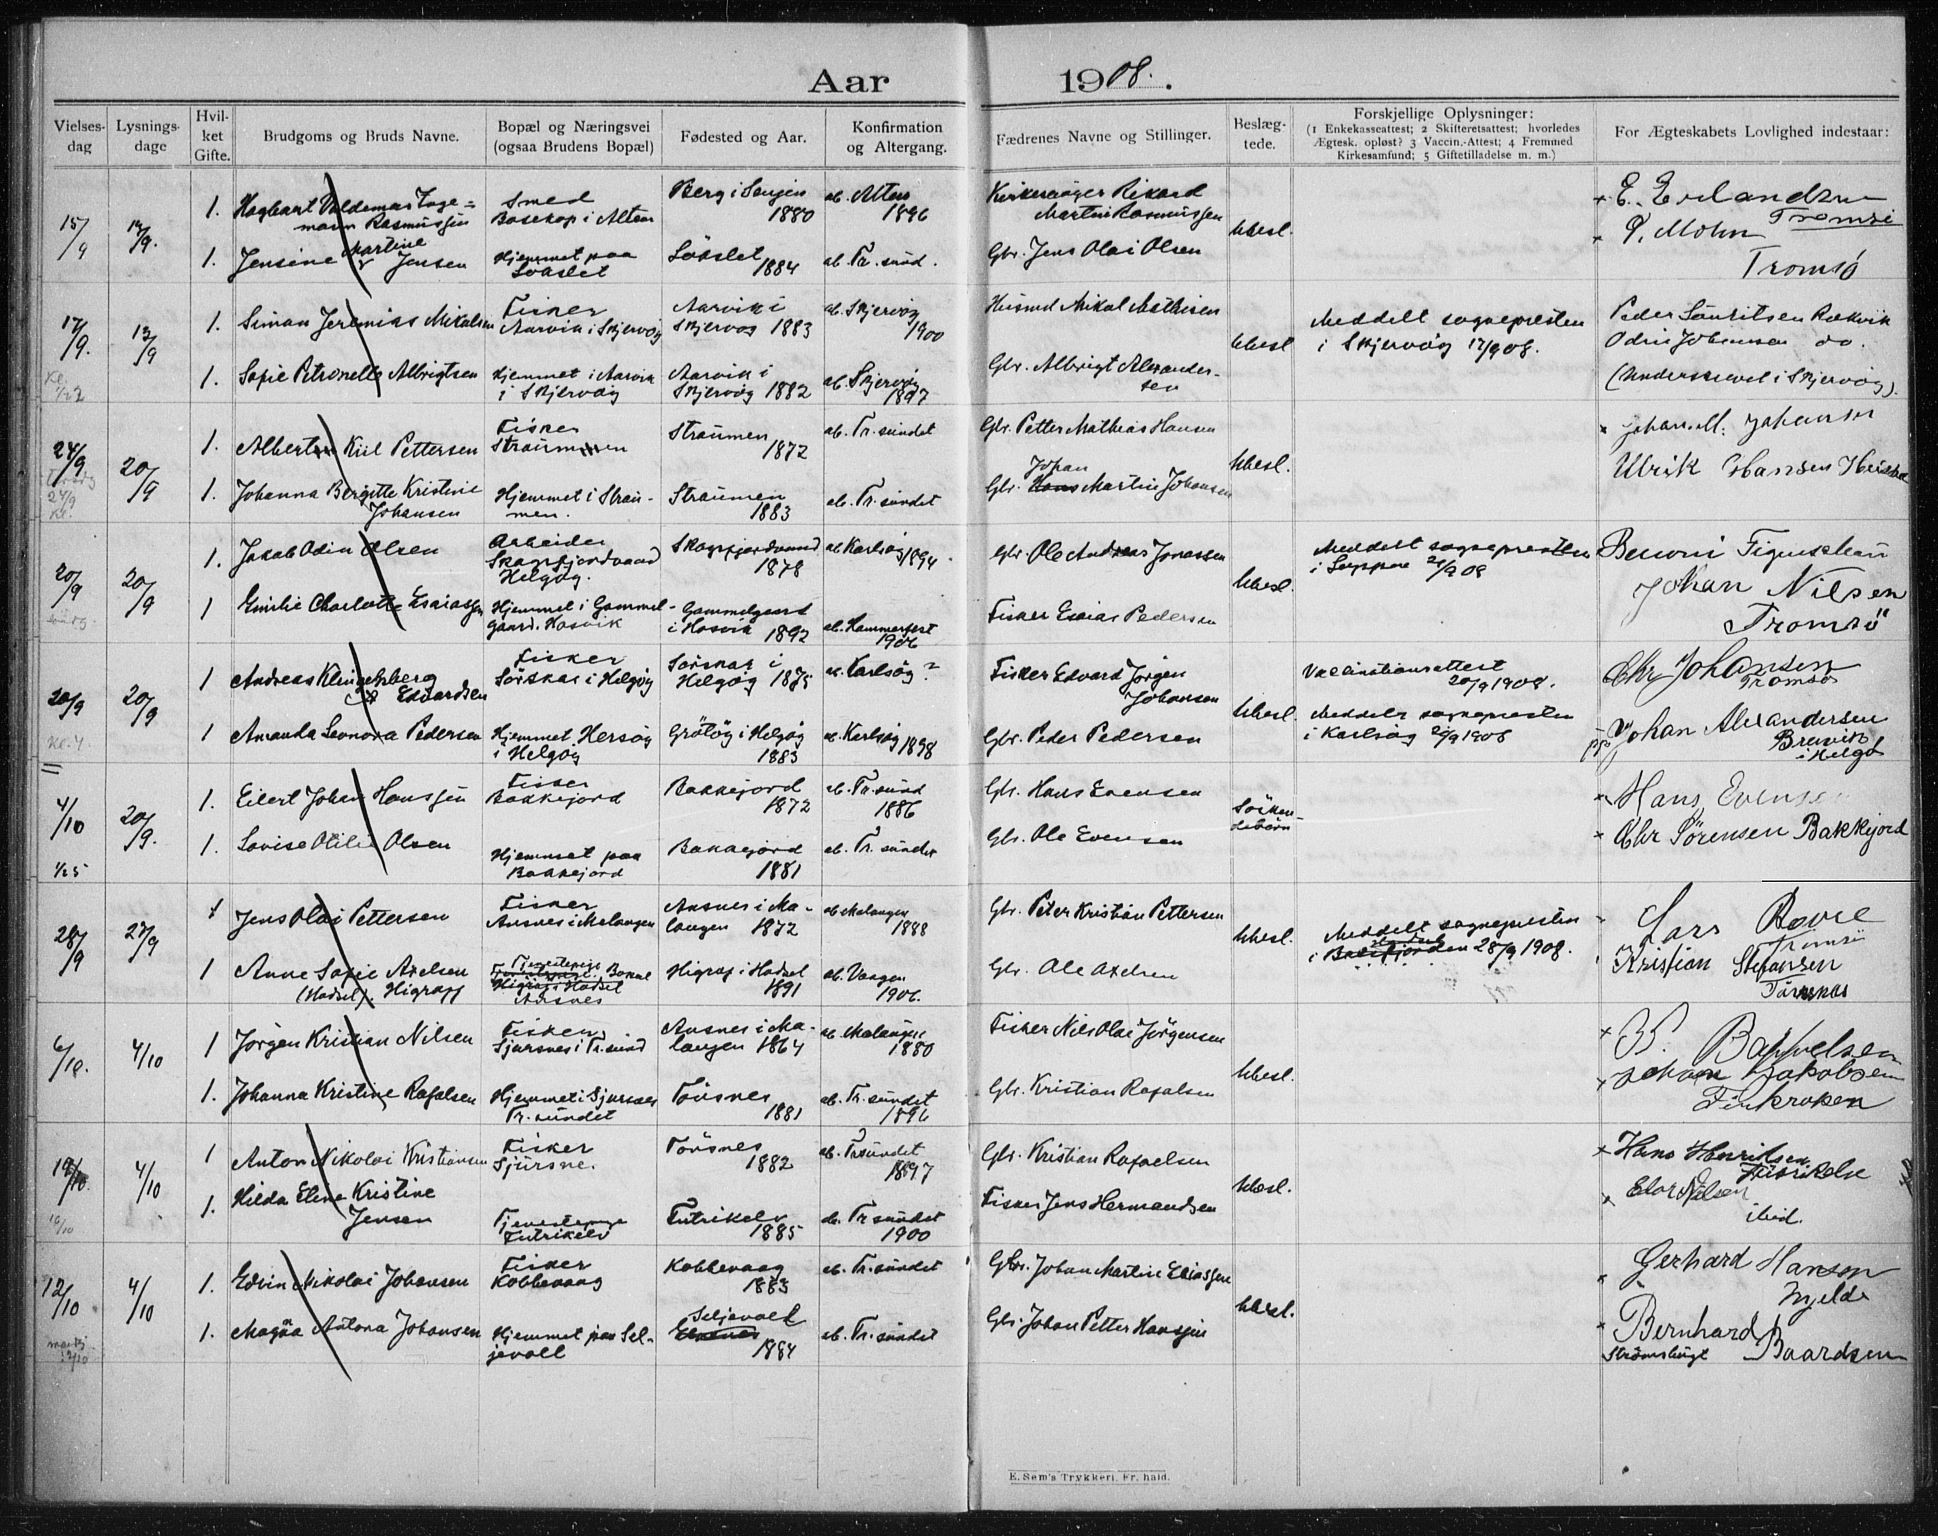 Aar 1908.
Vielses-dag
Lysnings-dage
Hvil-ket Gifte.
Brudgoms og Bruds Navne.
Bopæl og Næringsvei (ogsaa Brudens Bopæl)
Fødested og Aar.
Konfirmation og Altergang.
Fædrenes Navne og Stillinger.
Beslæg-tede.
Forskjellige Oplysninger:
(1 Enkekasseattest; 2 Skifteretsattest; hvorledes
Ægtesk. opløst? 3 Vaccin.-Attest; 4 Fremmed
Kirkesamfund; 5 Giftetilladelse m. m.)
For Ægteskabets Lovlighed indestaar:
15/9 13/9 1. Hagbart Valdemar Inge=
mann Rasmussen
Smed
Bosekop i Alten
Berg i Senjen
1880
Alten
1896
Kirkesanger Rikard
Martin Rasmussen
Ubesl.
E. Erlandsen
Tromsø
P. Mohn
Tromsö
1. Jensine Martine Jensen
Hjemmet paa
Lökslet
Lökslet
1884
Tr. sund.
Gbr. Jens Olai Olsen
17/9. 13/9 1. Siman Jeremias Mikalsen
Fisker
Aarvik i Skjervøy
Aarvik i
Skjervøy 1883
Skjervøy
1900
Husmd Mikal Mathisen
Ubesl.
Meddelt sognepresten
i Skjervøy 17/9 08.
Peder Lauritsen Rækvik
Odin Johansen do.
(Underskrevet i Skjervøy).
1. Sofie Petronelle Albrigtsen
Hjemmet i Aarvik
i Skjervøy
Aarvik i
Skjervøy 1882
Skjervøy
1897
Gbr. Albrigt Alexander-
sen
24/9 20/9 1. Albert Kiil Pettersen
Fisker
Straumen
Straumen
1872
Tr. sundet
Gbr. Petter Mathias Hansen
Ubesl.
Johan M. Johansen
Ulrik Hansen
1. Johanna Bergitte Kristine
Johansen
Hjemmet i Strau-
men.
Straumen
1883
Tr. sundet
Gbr. Johan Martin Johansen
20/9 20/9 1. Jakob Odin Olsen
Arbeider
Skogsfjordvand
Helgøy.
Skogsfjordvand
1878
Karlsøy 1894
Gbr. Ole Andreas Jonassen
Ubesl.
Meddelt sognepresten
i Loppen 21/9 08
Benoni Figenschau
Johan Nilsen
Tromsö
1 Emilie Charlotte Esaiassen
Hjemmet i Gammel-
gaard. Hasvik
Gammelgaard
i Hasvik 1892
Hammerfest
1906
Fisker Esaias Pedersen
20/9 20/9 1 Andreas Klingenberg
Edvardsen
Fisker
Sörskar i Helgøy
Sørskar i
Helgøy 1875
Karlsøy ?
Fisker Edvard Jørgen
Johansen
Ubesl.
Vaccinationsattest
20/9 1908.
Chr Johansen
Tromsø
1 Amanda Leonora Pedersen
Hjemmet Hersøy
i Helgøy
Grötöy i Helgøy
1883
Karlsøy 1898
Gbr. Peder Pedersen
Meddelt sognepresten
i Karlsøy 20/9 1908
Johan Alexandersen
Brevik
i Helgø
4/10 20/9. 1. Eilert Johan Hanssen
Fisker
Bakkejord
Bakkejord
1872
Tr. sund
1886
Gbr. Hans Evensen
Söskendebørn
Hans Evensen
Chr Sørensen Bakkejord
1. Lovise Otilie Olsen
Hjemmet paa
Bakkejord
Bakkejord
1881
Tr. sundet
Gbr. Ole Evensen
28/9 27/9 1 Jens Olai Pettersen
Fisker
Ansnes i Malangen
Ansnes i Ma-
langen 1872
Malangen
1888
Gbr. Peter Kristian Pettersen
Ubesl.
Meddelt sognepresten
i Balsfjorden 28/9 1908.
Lars Bovie
Tromsø
Kristian Stefansen
1 Anne Sofie Axelsen
(Hadsel). Higraff
Tjenestepige
Higraf i Hadsel
Ansnes
Higraf i Hadsel
1891
Vaagen
1906.
Gbr. Ole Axelsen
6/10. 4/10 1 Jørgen Kristian Nilsen
Fisker
Sjursnes i Tr. sund
Ansnes i Ma-
langen 1864
Malangen
1880
Fisker Nils Olai Jørgensen
Ubesl.
Johan Jakobsen
Finkroken
1. Johanna Kristine Rafalsen
Hjemmet i Sjursnes
Tr. sundet
Tönsnes
1881
Tr. sundet
1896
Gbr. Kristian Rafalsen
4/10 1 Anton Nikolai Kristiansen
Fisker
Sjursne.
Tönsnes
1882
Tr sundet
1897
Gbr. Kristian Rafaelsen
Ubesl.
Hans Henriksen
Futrikelv
Nilsen
ibid.
1. Hilda Elene Kristine
Jensen
Tjenestepige
Futrikelv
Futrikelv
1885
Tr sundet
1900
Fisker Jens Hermandsen
12/10 4/10 1. Edvin Nikolai Johansen
Fisker
Kobbevaag
Kobbevaag
1883
Tr. sundet
Gbr. Johan Martin Eliassen
Ubesl.
Gerhard Hanson
Bernhard
Baardsen
Strømsbugt
1. Magda Antona Johansen
Hjemmet paa Sel-
jevoll
Seljevoll
1884
Tr. sundet
Gbr. Johan Petter Hanssen
E. Sem's Trykkeri, Fr. hald.